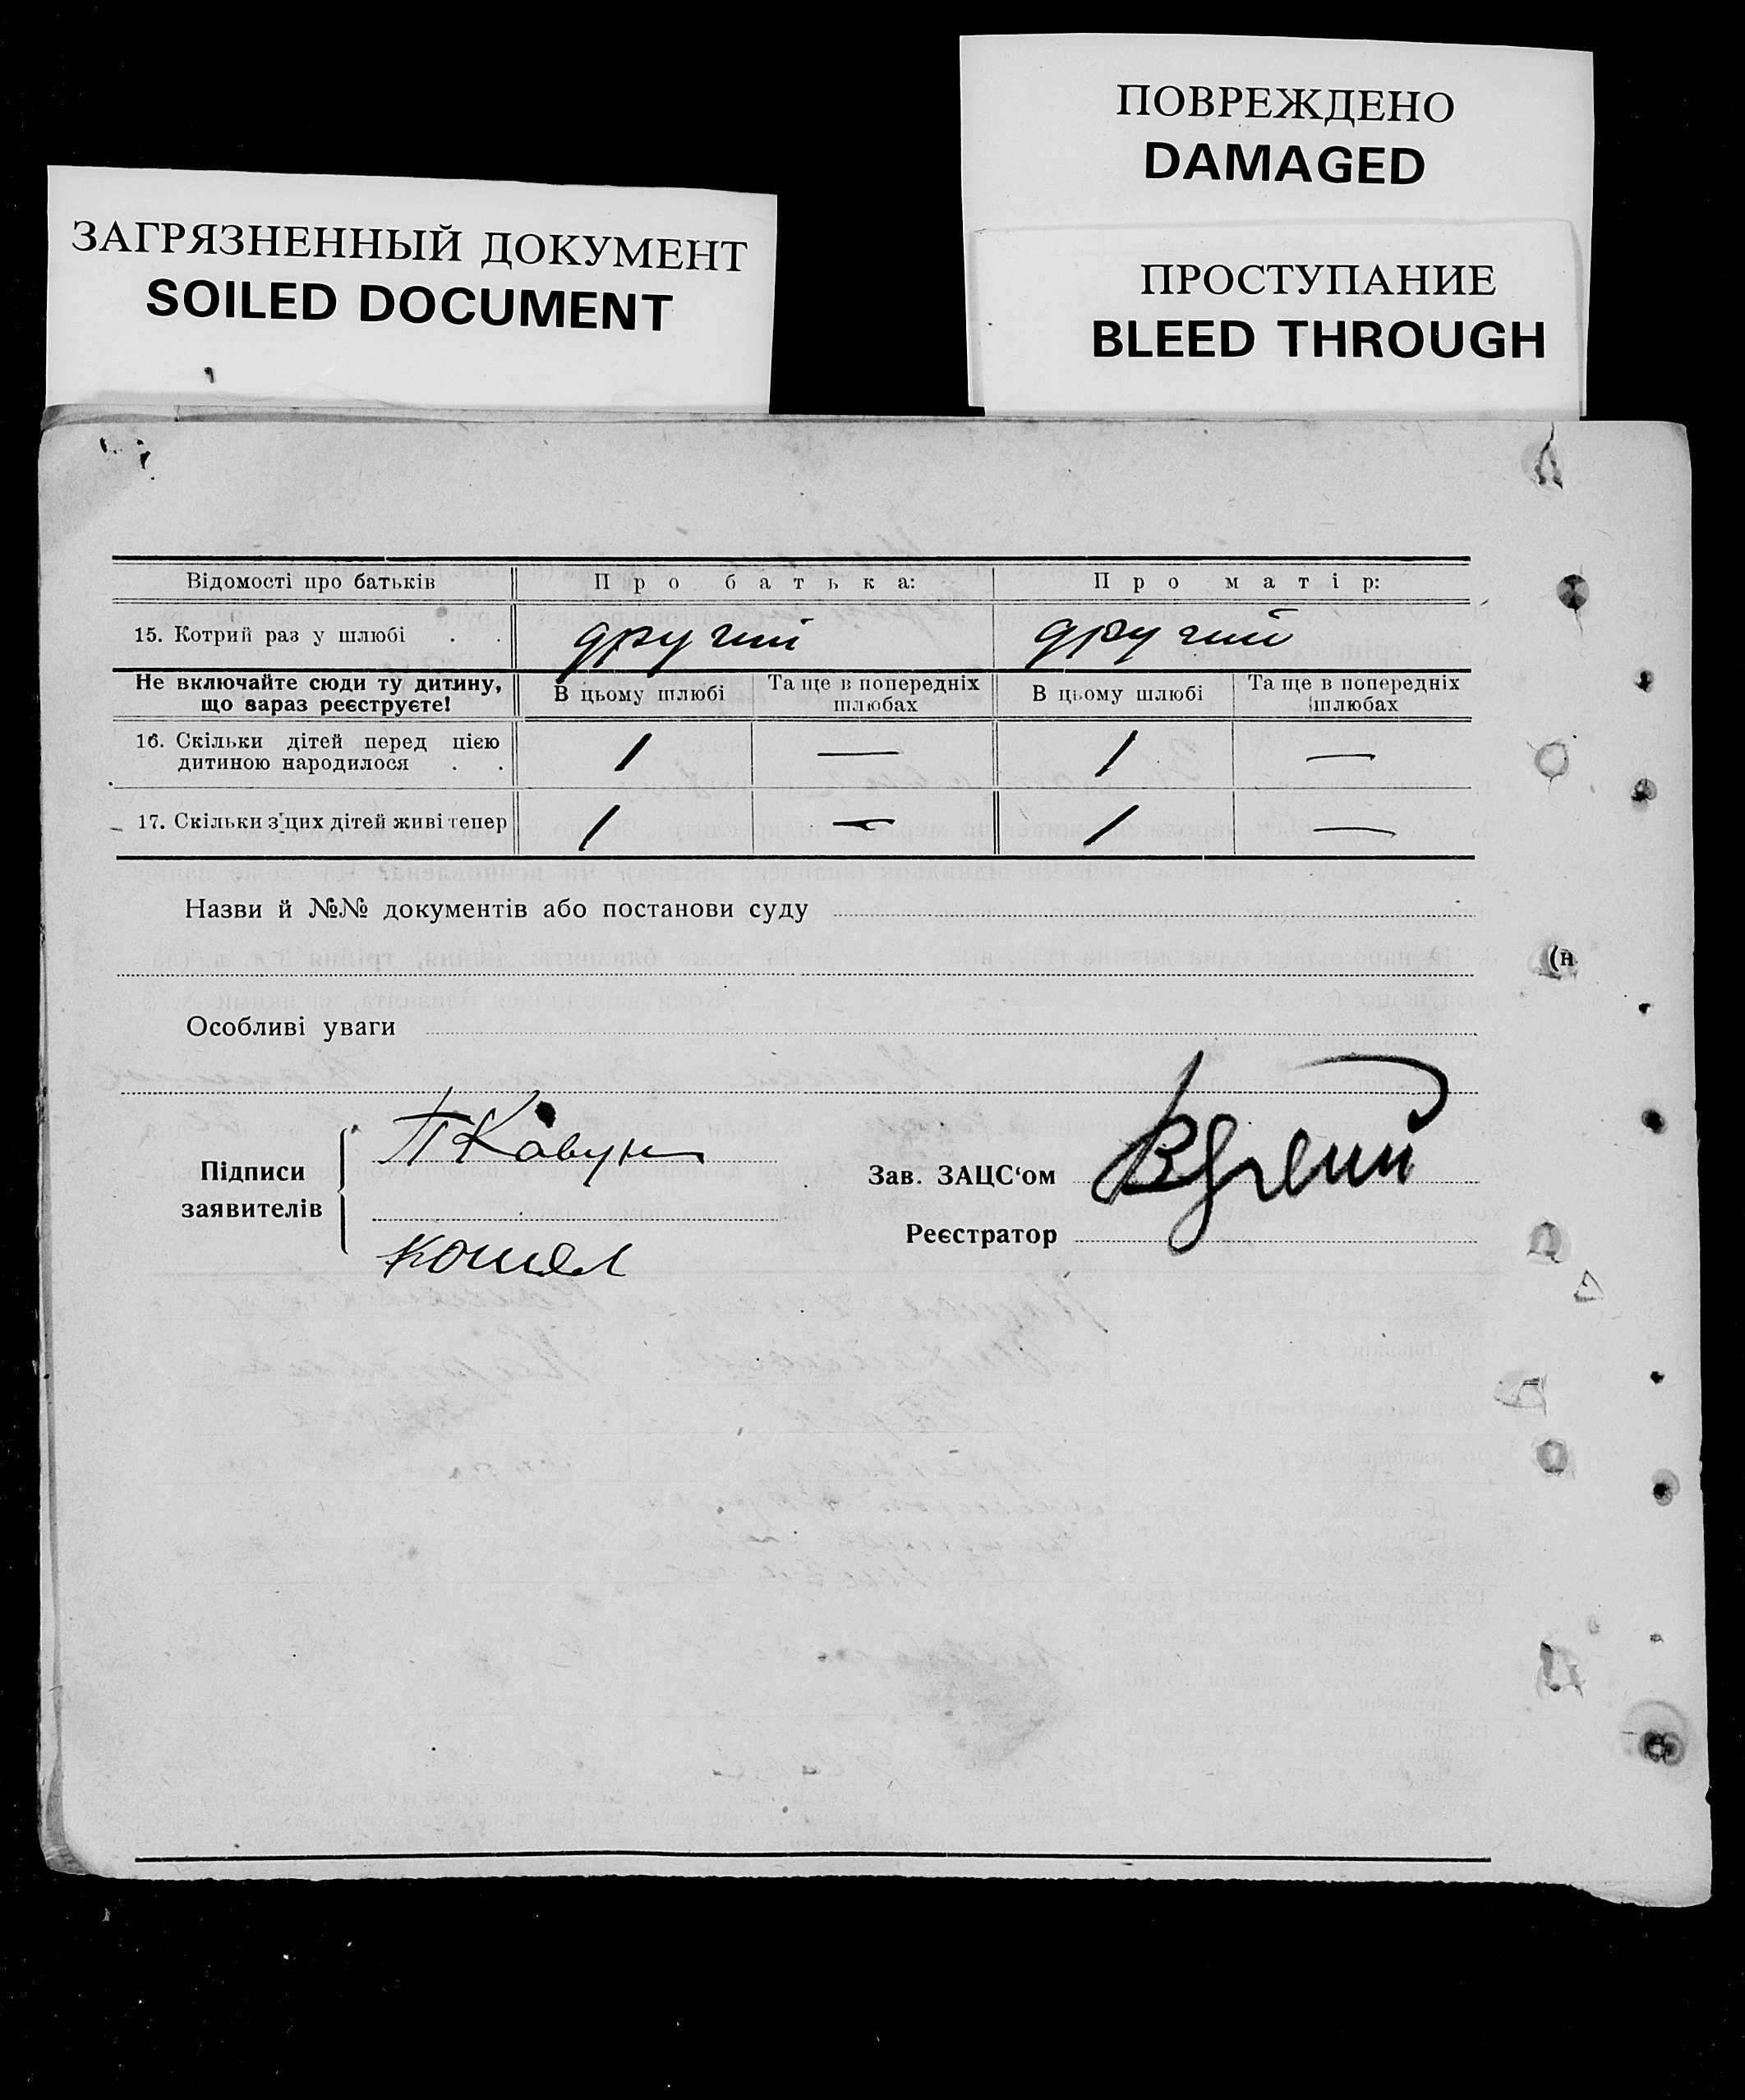 ПОВРЕЖДЕНО
DAMAGED
ЗАГРЯЗНЕННЫЙ ДОКУМЕНТ
SOILED DOCUMENT
ПРОСТУПАНИЕ
BLEED THROUGH
Відомості про батьків Про батька: Про матір:
15. Котрий раз у шлюбі . . другий другий
Не включайте сюди ту дитину, що зараз реєструєте! В цьому шлюбі Та ще в попередніх шлюбах В цьому шлюбі Та ще в попередніх шлюбах
16. Скільки дітей перед цією дитиною народилося . . 1 — 1 —
17. Скільки з цих дітей живі тепер 1 — 1 —
Назви й №№ документів або постанови суду
(н
Особливі уваги
Підписи заявителів
П Кавун
Зав. ЗАЦС‘ом
Реєстратор